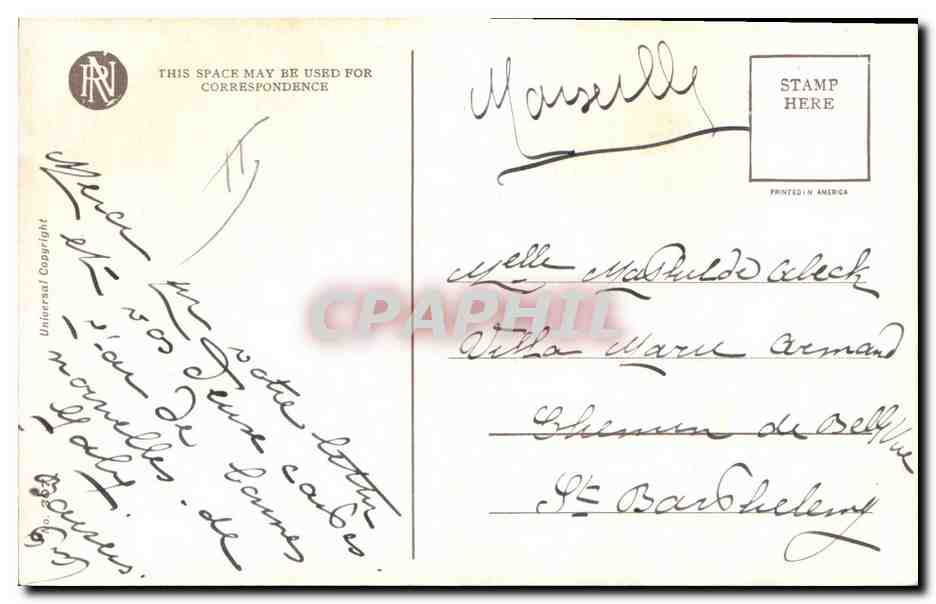 RN
THIS SPACE MAY BE USED FOR
CORRESPONDENCE
Marseille
STAMP
HERE
PRINTED IN AMERICA
Universal Copyright
Merci votre lettre
et vos deux cartes.
j'ai de bonnes
nouvelles. de
baisers
No.
Melle Mathilde
Villa Marie Armand
Chemin de Bellevue
St Barthelemy
CPAPHIL